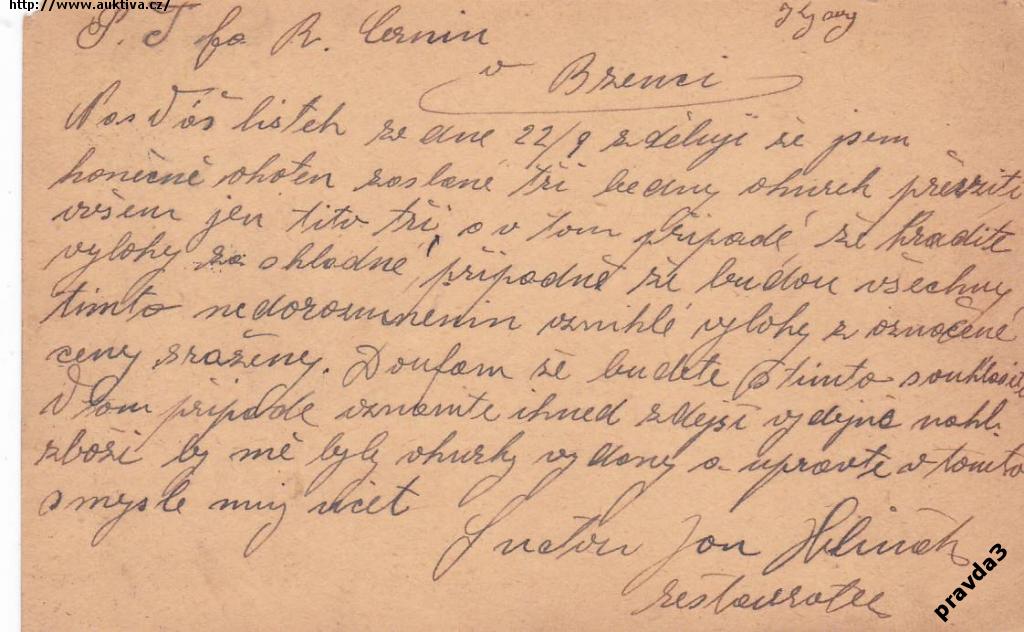 http://www.auktiva.cz/
P. T fa R. Cernin
v Bzenci
Na Váš listek ze dne 22/9 zděluji že jsem
konečně ohoten zaslané tři bedny okurek převziti
všem jen tito tři, a v tom připadé že hradite
vylohy za skladné, připadně že budou všechny
timto nedorozumněnim vzniklé vylohy z označené
ceny sraženy. Doufam že budete s timto souhlasit
V tom připade vznamte ihned zdejší vydejně nakl.
zboži by mě byly okurky vydany a upravte v tomto
smysle muj učet
Jan Hliňák
restauratér
pravda3